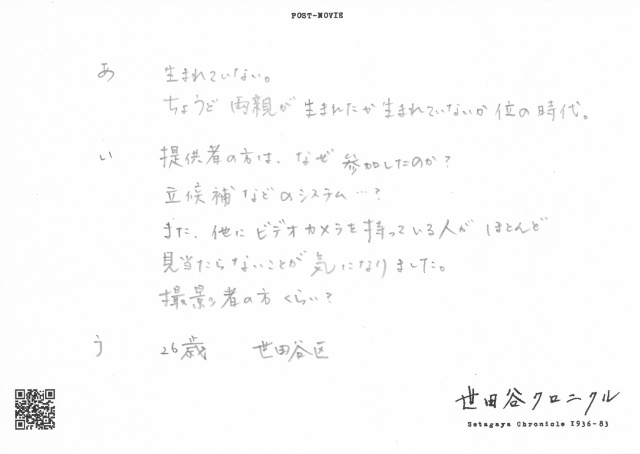 POST-MOVIE
あ 生まれていない。
ちょうど両親が生まれたか生まれていないか位の時代。
い 提供者の方は、なぜ参加したのか?
立候補などのシステム…?
また、他にビデオカメラを持っている人がほとんど
見当たらないことが気になりました。
撮影者の方くらい?
う 26歳 世田谷区
世田谷クロニクル
Setagaya Chronicle 1936-83